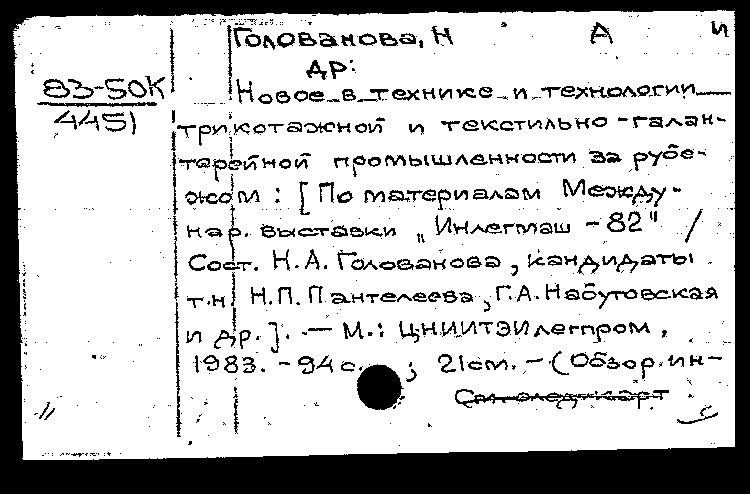 Голованова, Н А и
др:
83-50К
4451
Новое в технике и технологии
трикотажной и текстильно-галан-
терейной промышленности за рубе-
жом : [ По материалам Между-
нар. выставки „Инлегмаш - 82" /
Сост. Н.А. Голованова, кандидаты
т.н. Н.П. Пантелеева, Г.А. Набутовская
и др. ]. — М.: ЦНИИТЭИлегпром,
1983. - 94 с. ; 21 cm. - (Обзор. ин-
См. след. карт